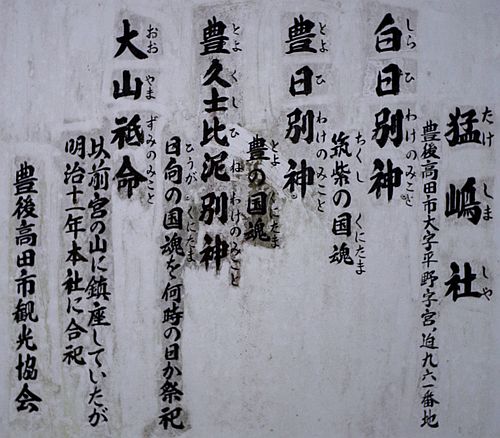 猛嶋社
たけしましや
豊後高田市大字平野字宮ノ迫九六一番地
白日別神
しらひわけのみこと
筑紫の国魂
ちくしくにたま
豊日別神。
とよひわけのみこと
豊の国魂
とよくにたま
豊久士比泥別神
とよくしひねわけのみこと
日向の国魂を何時の日か祭祀
ひうがくにたま
大山祗命
おおやまずみのみこと
以前宮の山に鎮座していたが
明治十一年本社に合祀
豊後高田市観光協会